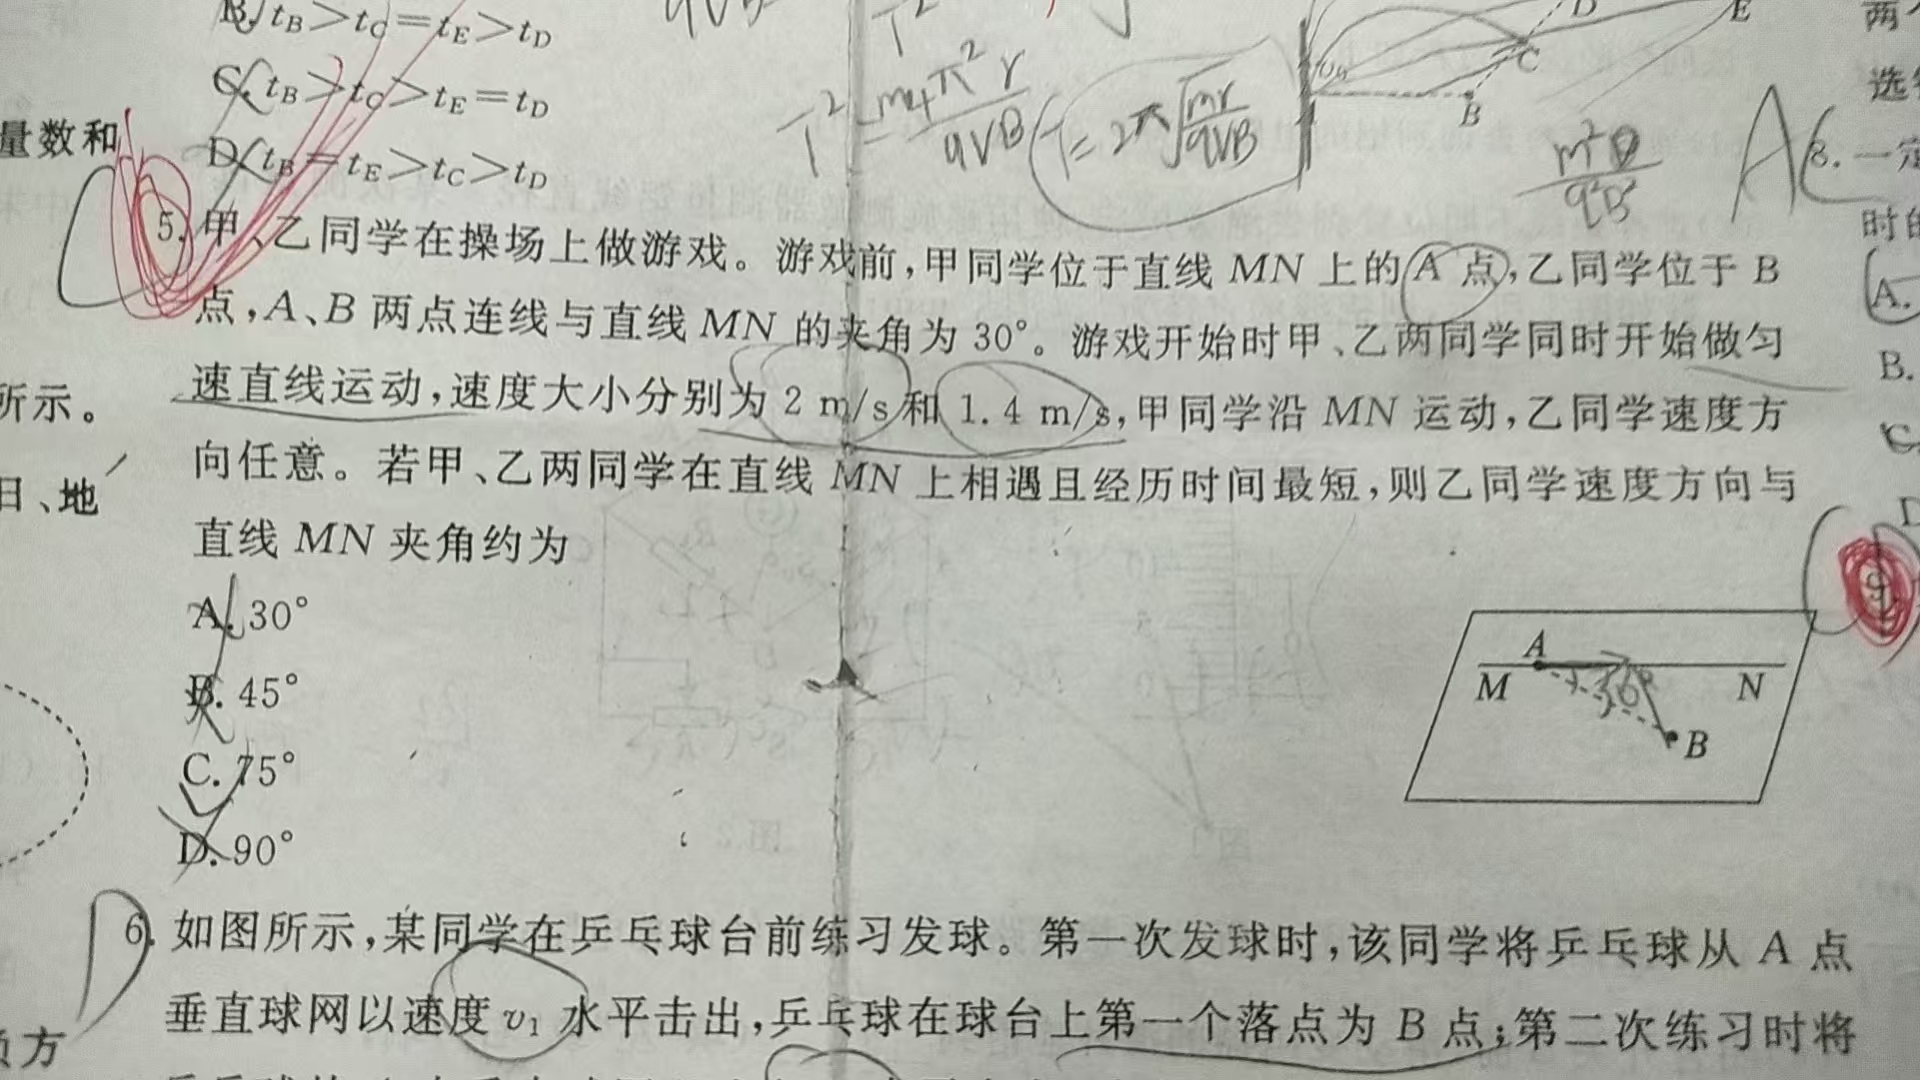 B. t_B>t_C=t_E>t_D
C. t_B>t_C>t_E=t_D
D. t_B=t_E>t_C>t_D
量数和
T²=m4π²r/qVB
T=2π√(mr/qVB)
D
E
C
B
A
5. 甲、乙同学在操场上做游戏。游戏前,甲同学位于直线 MN 上的 A 点,乙同学位于 B
点,A、B 两点连线与直线 MN 的夹角为 30°。游戏开始时甲、乙两同学同时开始做匀
速直线运动,速度大小分别为 2 m/s 和 1.4 m/s,甲同学沿 MN 运动,乙同学速度方
向任意。若甲、乙两同学在直线 MN 上相遇且经历时间最短,则乙同学速度方向与
直线 MN 夹角约为
A. 30°
B. 45°
C. 75°
D. 90°
A
M
N
30°
B
所示。
日、地
D
6. 如图所示,某同学在乒乓球台前练习发球。第一次发球时,该同学将乒乓球从 A 点
垂直球网以速度 v₁ 水平击出,乒乓球在球台上第一个落点为 B 点;第二次练习时将
方
选
8. 一定
时的
A.
B.
C.
D
9.